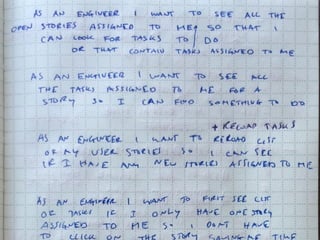 AS AN ENGINEER I WANT TO SEE ALL THE
OPEN STORIES ASSIGNED TO ME, SO THAT I
CAN LOOK FOR TASKS TO DO
OR THAT CONTAIN TASKS ASSIGNED TO ME
AS AN ENGINEER I WANT TO SEE ALL
THE TASKS ASSIGNED TO ME FOR A
STORY SO I CAN FIND SOMETHING TO DO
+ RELOAD TASKS
AS AN ENGINEER I WANT TO RELOAD LIST
OF MY USER STORIES SO I CAN SEE
IF I HAVE ANY NEW STORIES ASSIGNED TO ME
AS AN ENGINEER I WANT TO FIRST SEE LIST
OF TASKS IF I ONLY HAVE ONE STORY
ASSIGNED TO ME SO I DONT HAVE
TO CLICK ON THE STORY SAVING ME TIME